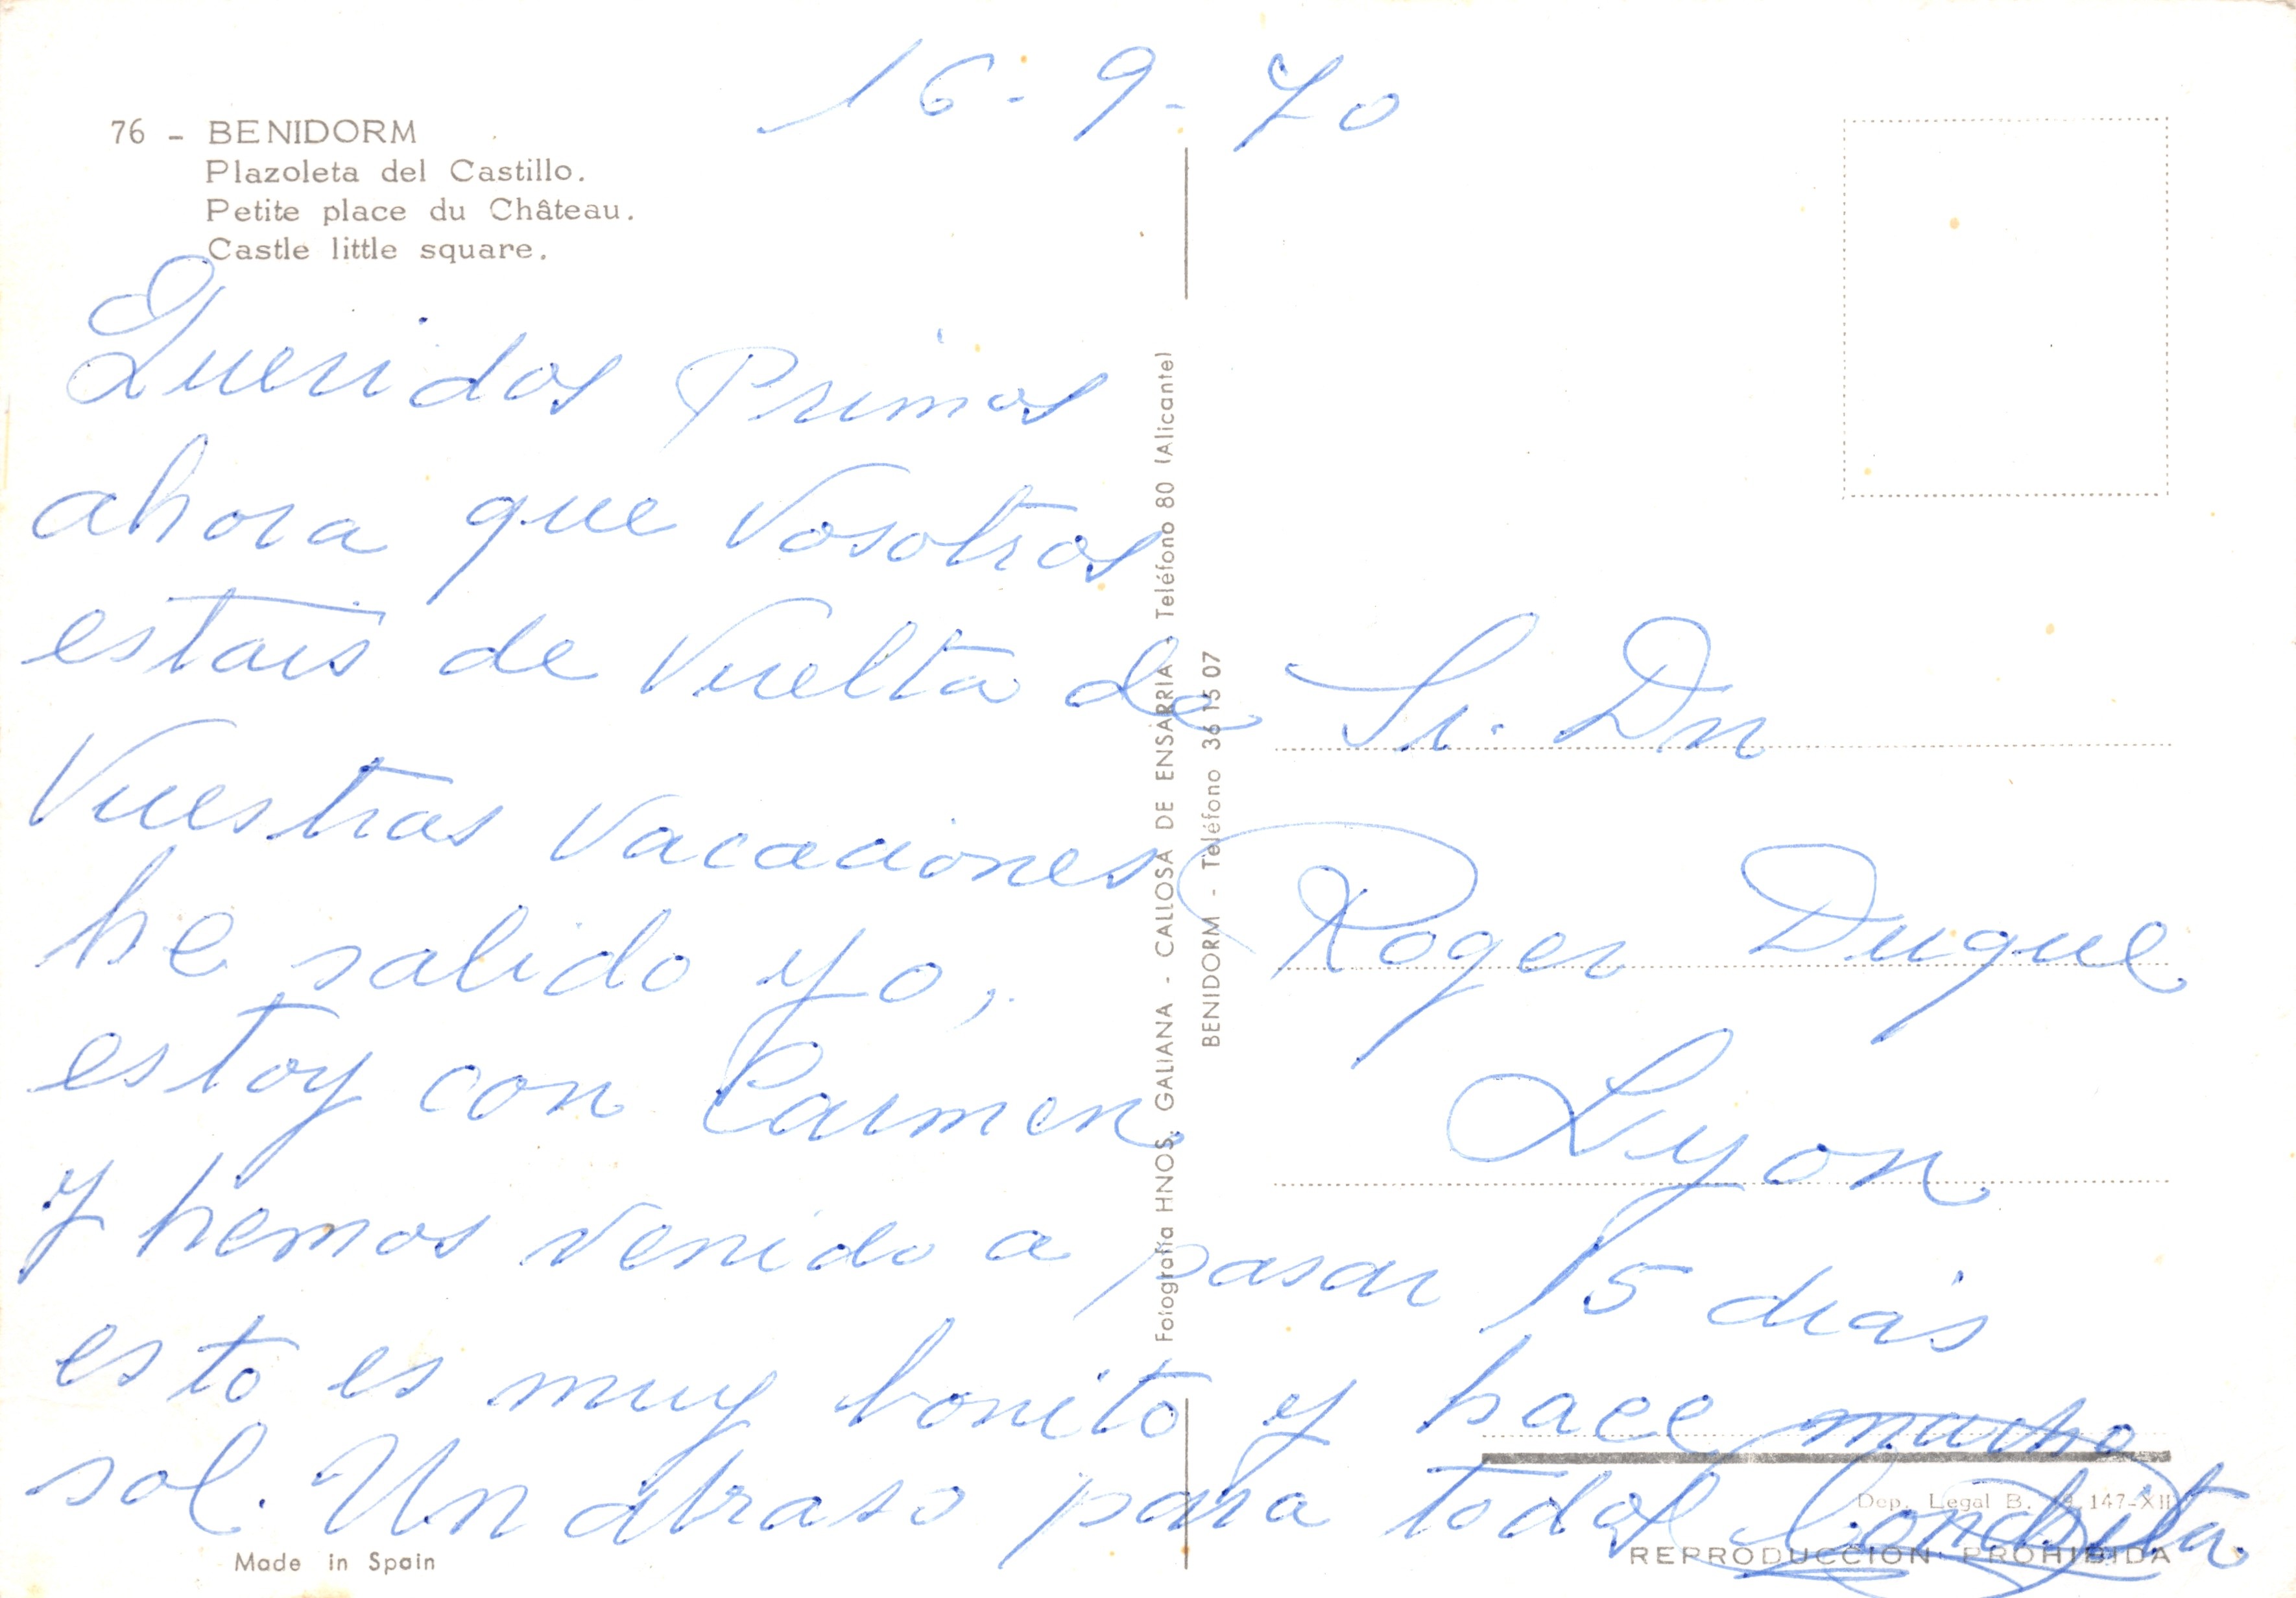 16-9-70
76 - BENIDORM
Plazoleta del Castillo.
Petite place du Château.
Castle little square.
Queridos Primos
ahora que Vosotros
estais de Vuelta de
Vuestras Vacaciones
he salido yo,
estoy con Carmen
y hemos venido a pasar 15 dias
esto es muy bonito y hace mucho
sol. Un abraso para todos
Fotografía HNOS. GALIANA - CALLOSA DE ENSARRIA - Teléfono 80 (Alicante)
BENIDORM - Teléfono 36 15 07
Sr. Dn
Roger Duque
Lyon
Dep. Legal B. 147-XII
REPRODUCCION PROHIBIDA
Made in Spain